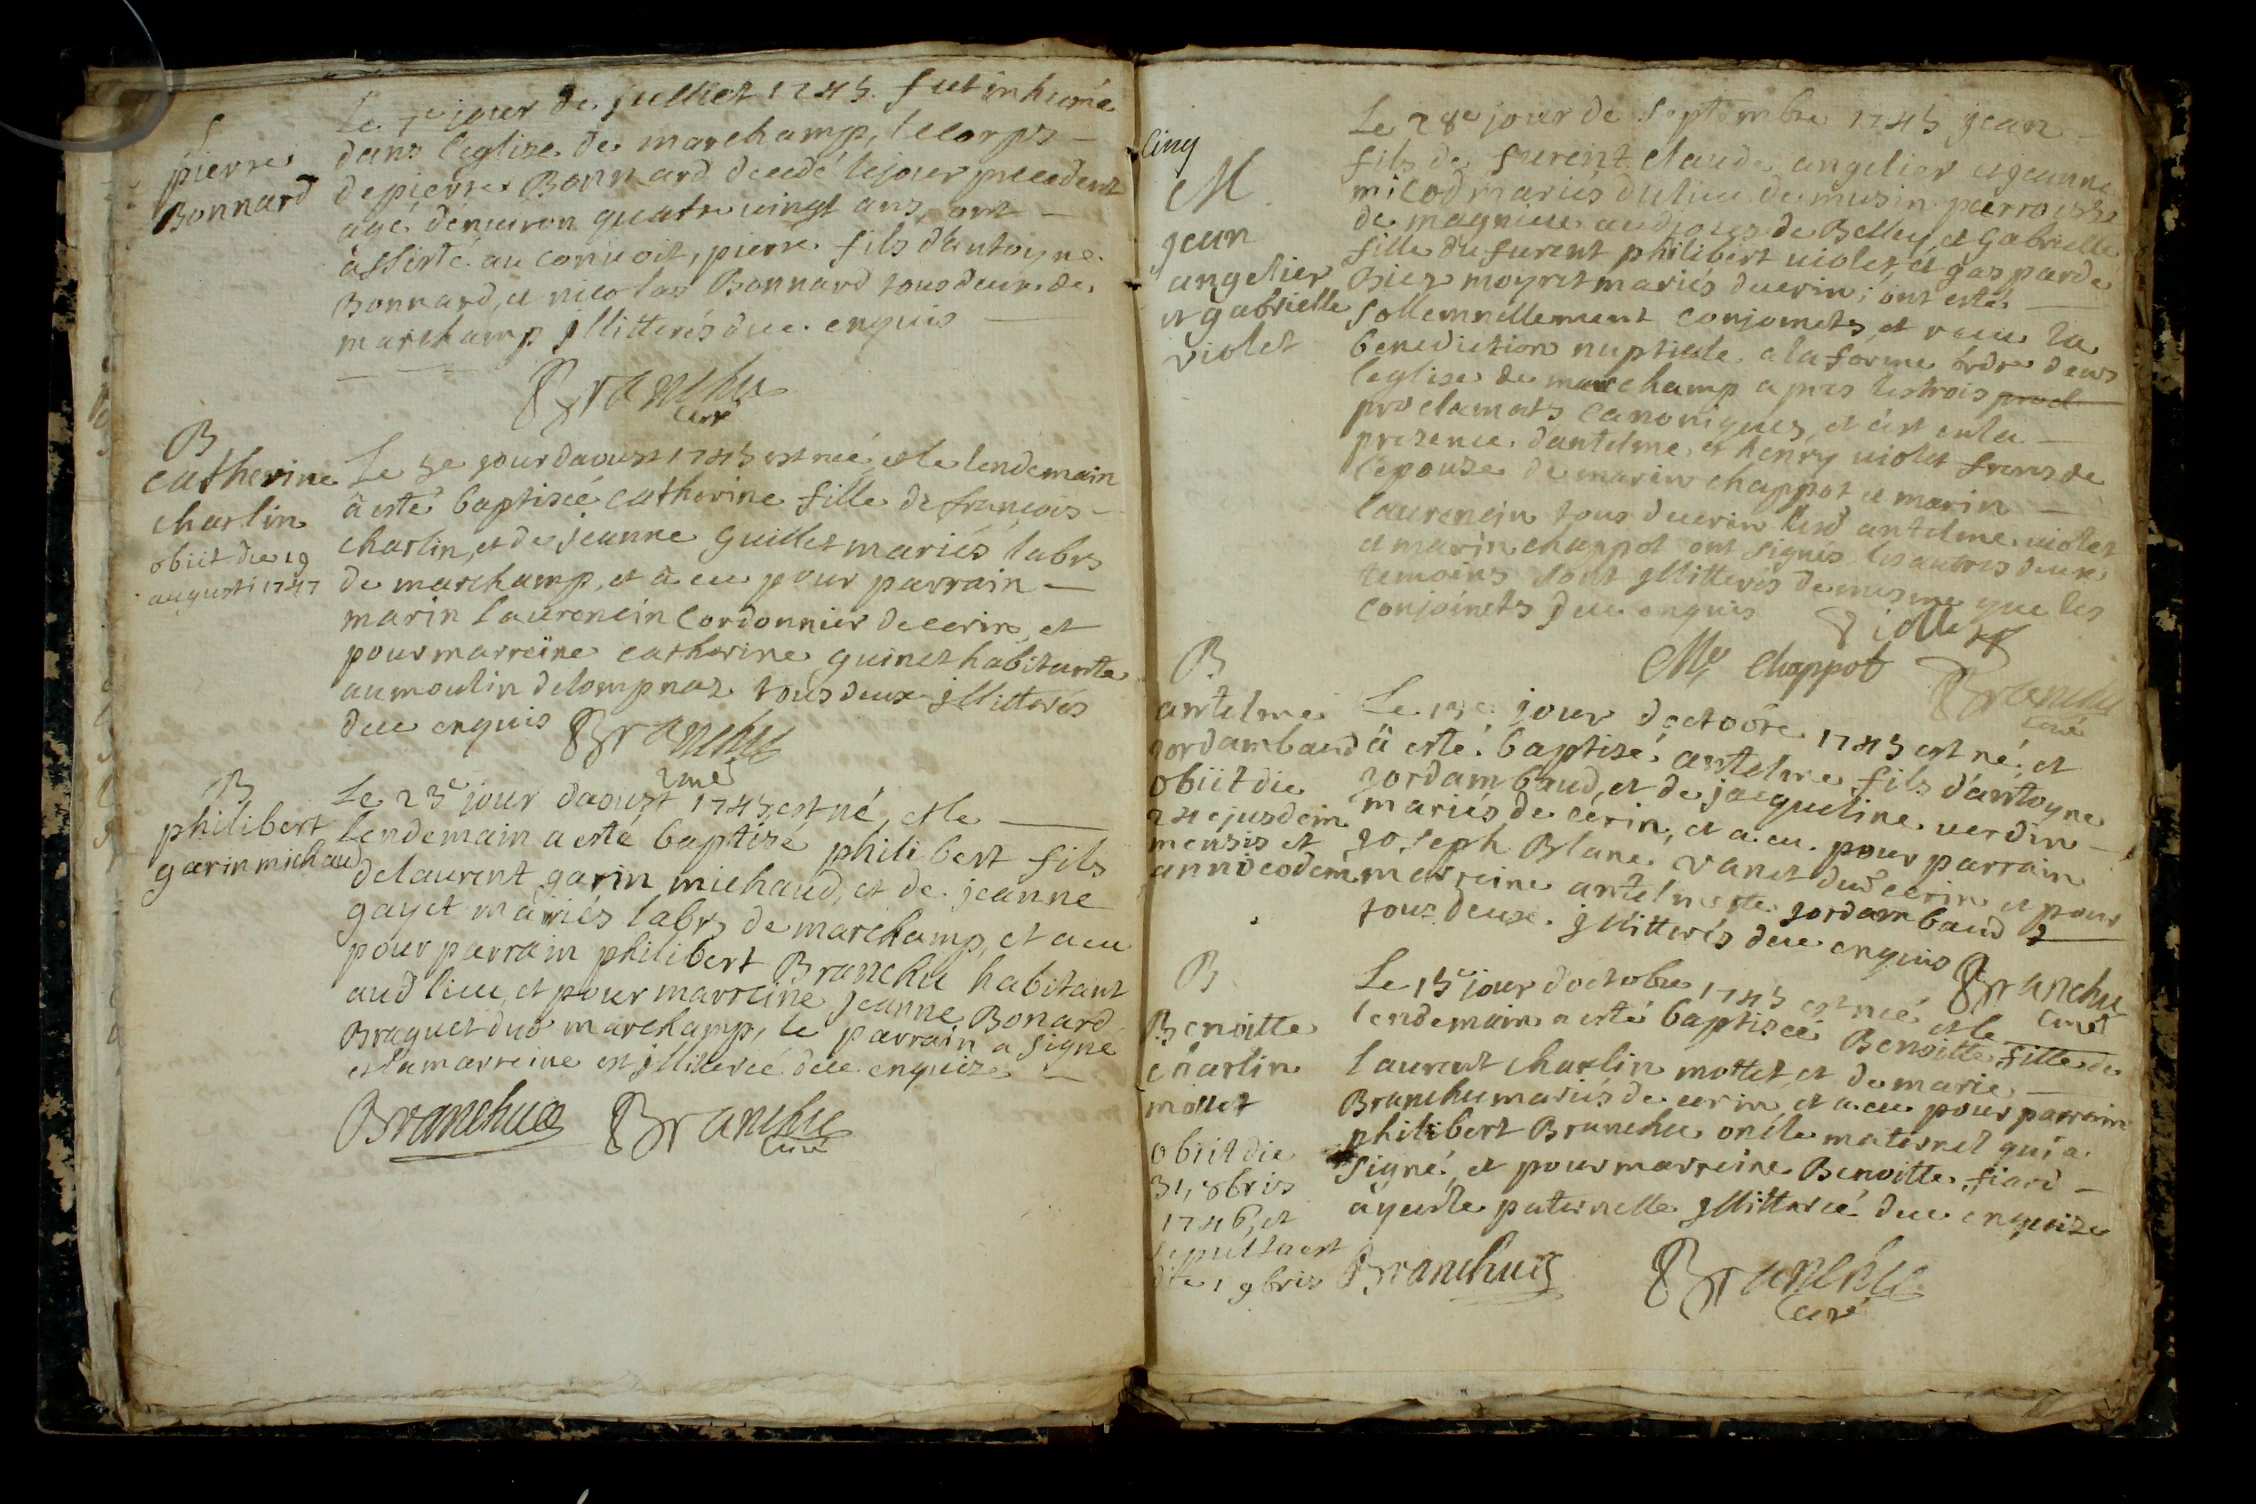 S
pierre
Bonnard
Le 7e jour de juilliet 1745. fut inhumé
dans l'eglise de marchamp, le corps
de pierre Bonnard decedé le jour precedent
agé d'environ quatre vingt ans, ont
assisté au convoit, pierre fils d'antoyne
Bonnard, et nicolas Bonnard tous deux de
marchamp jllitterés due enquis
Branchu
curé
B
catherine
charlin
obiit die 19
augusti 1747
Le 5e jour daoust 1745 est née, et le lendemain
à esté baptiseé catherine fille de françois
charlin, et de jeanne guillet mariés labrs
de marchamp, et à eu pour parrain
marin laurencin cordonnier de cerin, et
pour marreine catherine guinet habitante
au moulin de lompnaz tous deux jllitterés
due enquis
Branchu
curé
B
philibert
garin michaud
Le 23e jour daoust 1745 est né, et le
lendemain a esté baptisé philibert fils
de laurent garin michaud, et de jeanne
gayet mariés labrs de marchamp, et a eu
pour parrain philibert Branchu habitant
aud lieu, et pour marreine jeanne Bonard
Braguet dud marchamp, le parrain a signé
et la marreine est jlliterée due enquise
Branchu Branchu
curé
cinq
M
jean
angelier
et gabrielle
violet
Le 28e jour de septembre 1745 jean
fils de furent claude angelier et jeanne
milod mariés du lieu de musin parroisse
de magnieu au dioces de Belley, et Gabrielle
fille du furent philibert violet, et gasparde
Biez moyret mariés de cerin; ont esté
sollemnellement conjoincts, et receu la
benediction nuptiale a la forme ordre dans
l'eglise de marchamp apres les trois procl
proclamats canoniques, et c'est en la
presence d'antelme, et henry violet freres de
l'epouze de marin chappot et marin
laurencin tous de cerin lesd antelme violet
et marin chappot ont signés les autres deux
temoins sont jllitterés de mesme que les
conjoincts due enquis
Violet
M chappot Branchu
curé
B
antelme
jordambaud
obiit die
24 ejusdem
mensis et
anni eodem
Le 13e jour d'octobre 1745 est né, et
à esté baptizé antelme fils d'antoyne
jordambaud, et de jacqueline verdin
mariés de cérin, et a eu pour parrain
joseph Blanc vanet dud cerin et pour
marreine antelmette jordambaud
tous deux jllitterés due enquis Branchu
curé
B
Benoitte
charlin
mottet
obiit die
31, 8bris
1746, et
sepulta est
die 1 9bris
Le 15e jour d'octobre 1745 est née et le
lendemain a esté baptiseé Benoitte fille de
laurent charlin mottet, et de marie
Branchu mariés de cerin, et a eu pour parrain
philibert Branchu oncle maternel qui a
signé, et pour marreine Benoitte fiard
ayeulle paternelle jllitterée due enquise
Branchu Branchu
curé